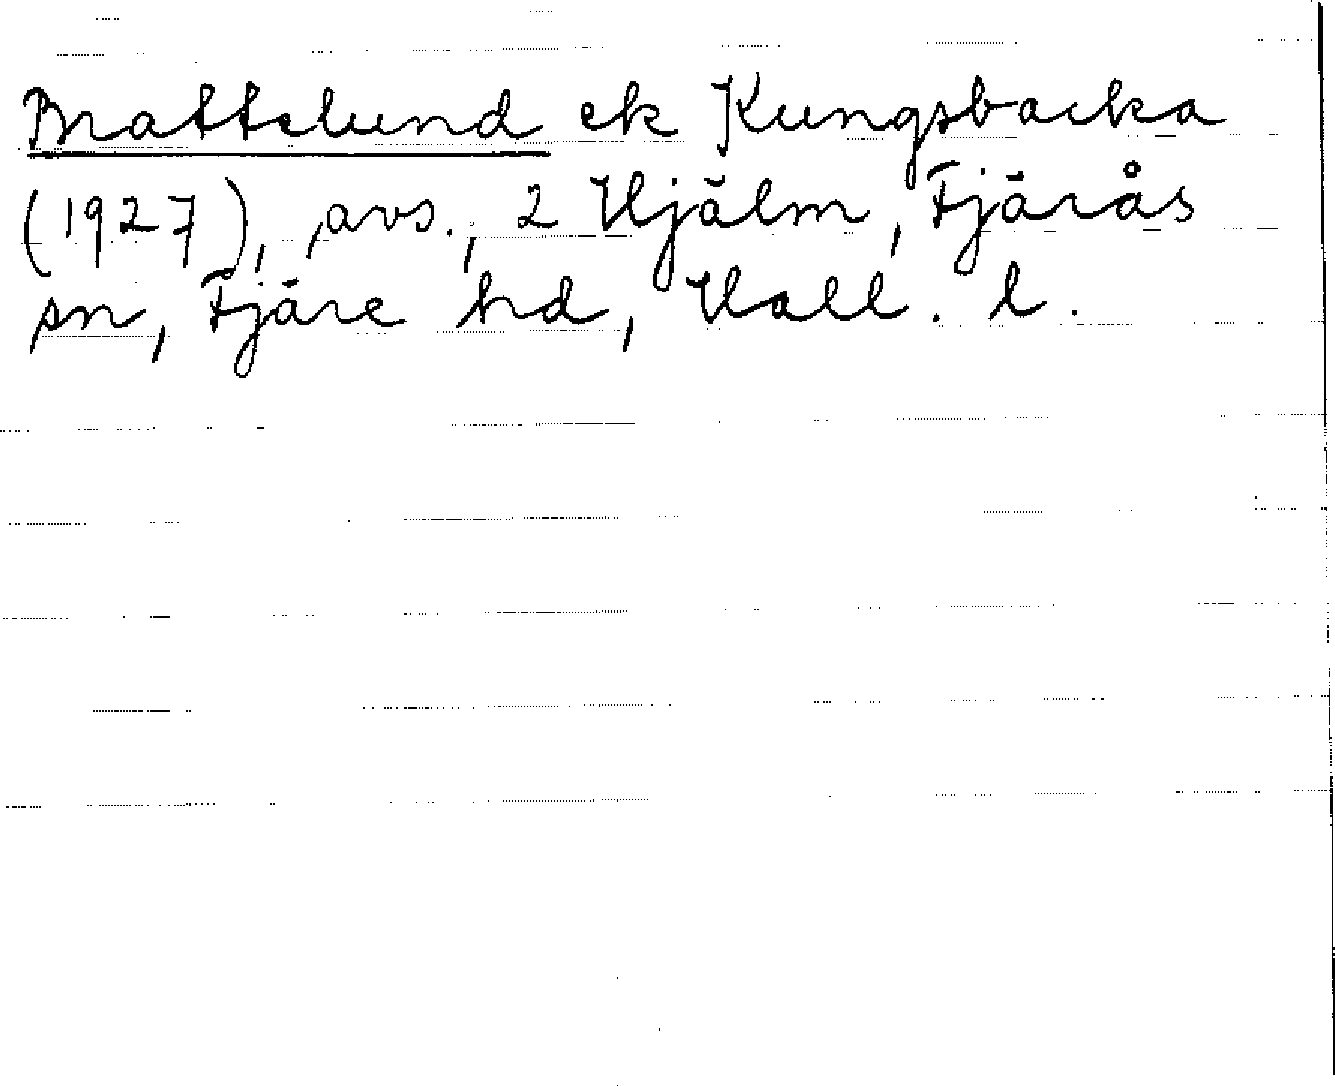 Brattelund ek Kungsbacka
(1927), avs., 2 Hjälm, Fjärås
sn, Fjäre hd, Hall. l.